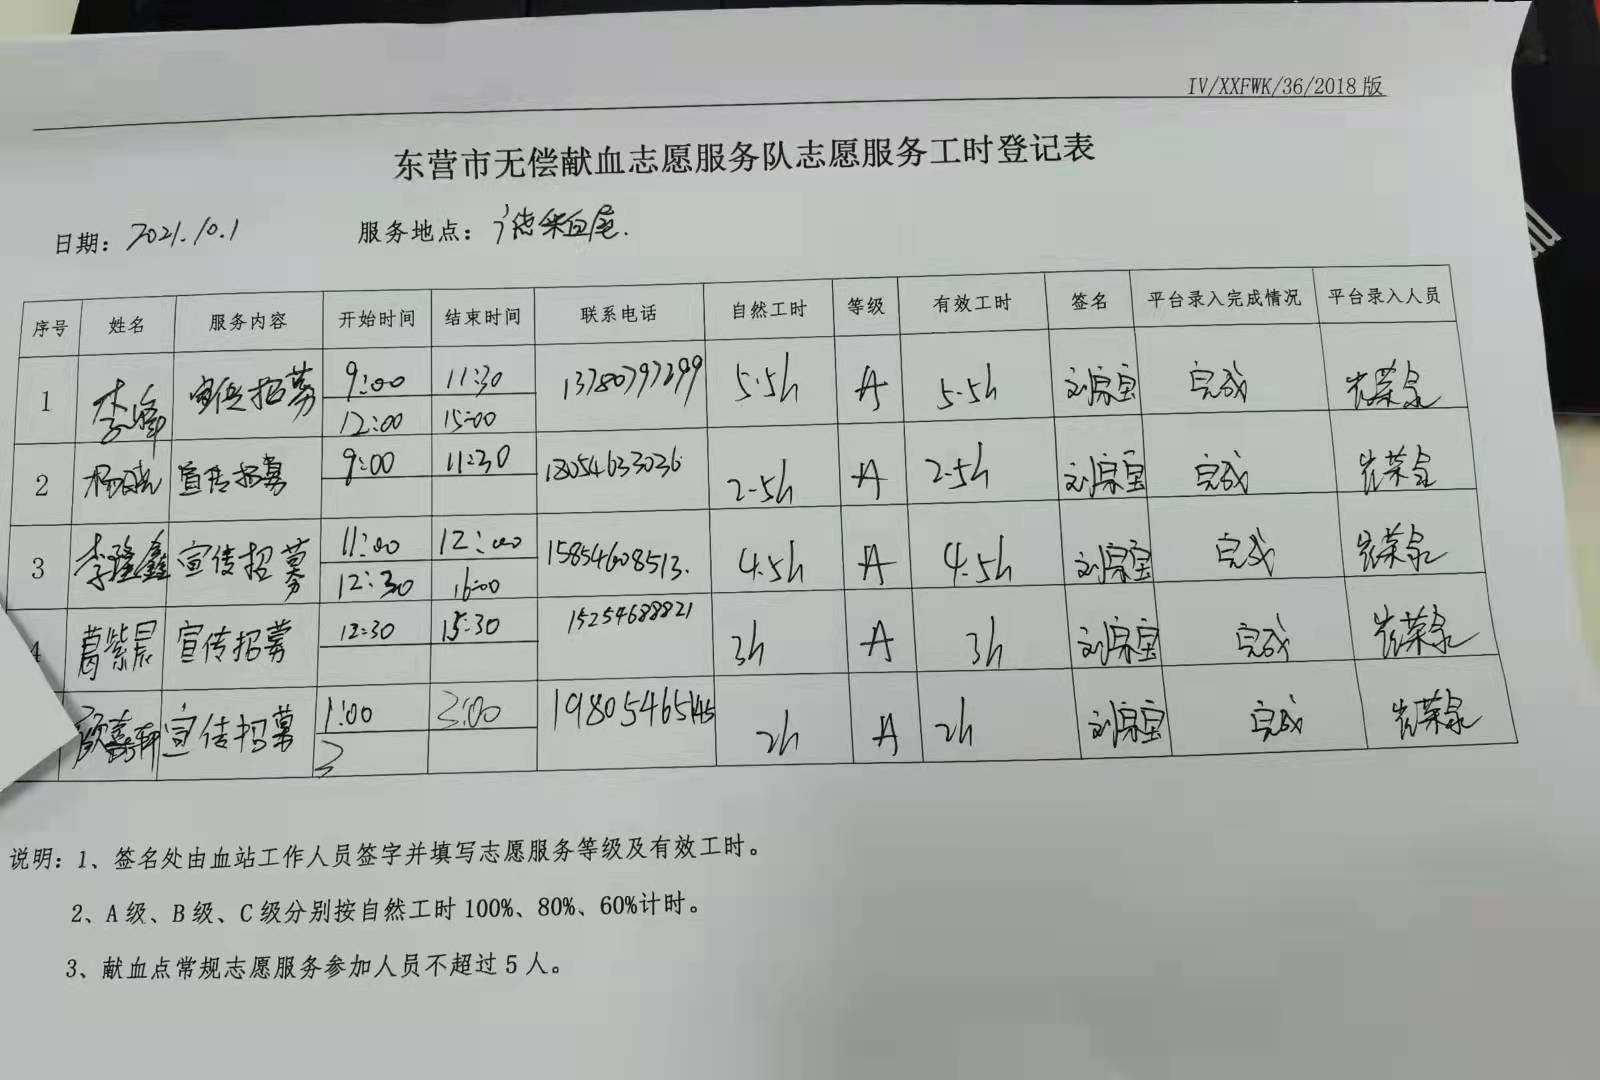 IV/XXFWK/36/2018版
东营市无偿献血志愿服务队志愿服务工时登记表
日期：2021.10.1 服务地点：
序号 姓名 服务内容 开始时间 结束时间 联系电话 自然工时 等级 有效工时 签名 平台录入完成情况 平台录入人员
1 李峰 宣传招募 9:00 11:30 13780797299 5.5h A 5.5h 刘宗宝 完成
12:00 15:00
2 宣传招募 9:00 11:30 18054633036 2.5h A 2.5h 刘宗宝 完成
3 李隆鑫 宣传招募 11:00 12:00 15854608513. 4.5h A 4.5h 刘宗宝 完成
12:30 16:00
4 葛紫晨 宣传招募 12:30 15:30 15254688821 3h A 3h 刘宗宝 完成
宣传招募 1:00 3:00 2h A 2h 刘宗宝 完成
3
说明：1、签名处由血站工作人员签字并填写志愿服务等级及有效工时。
2、A级、B级、C级分别按自然工时100%、80%、60%计时。
3、献血点常规志愿服务参加人员不超过5人。